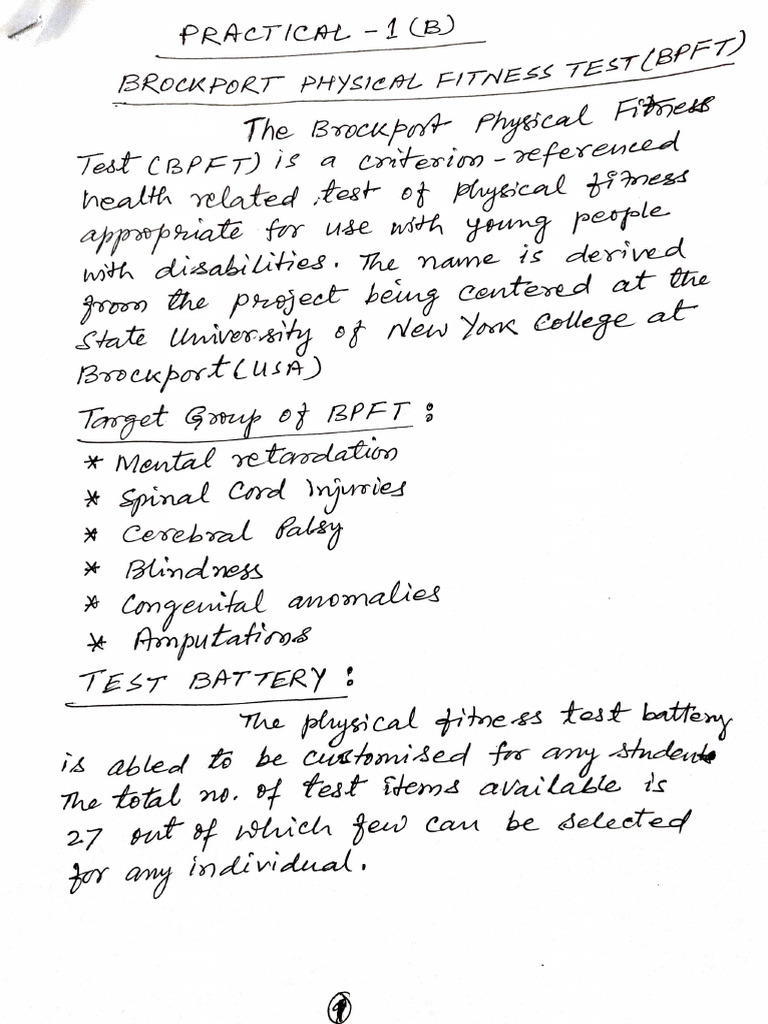 PRACTICAL - 1 (B)
BROCKPORT PHYSICAL FITNESS TEST (BPFT)
The Brockport Physical Fitness
Test (BPFT) is a criterion-referenced
health related test of physical fitness
appropriate for use with young people
with disabilities. The name is derived
from the project being centered at the
State University of New York College at
Brockport (USA)
Target Group of BPFT :
* Mental retardation
* Spinal Cord Injuries
* Cerebral Palsy
* Blindness
* Congenital anomalies
* Amputations
TEST BATTERY :
The physical fitness test battery
is abled to be customised for any student
The total no. of test items available is
27 out of which few can be selected
for any individual.